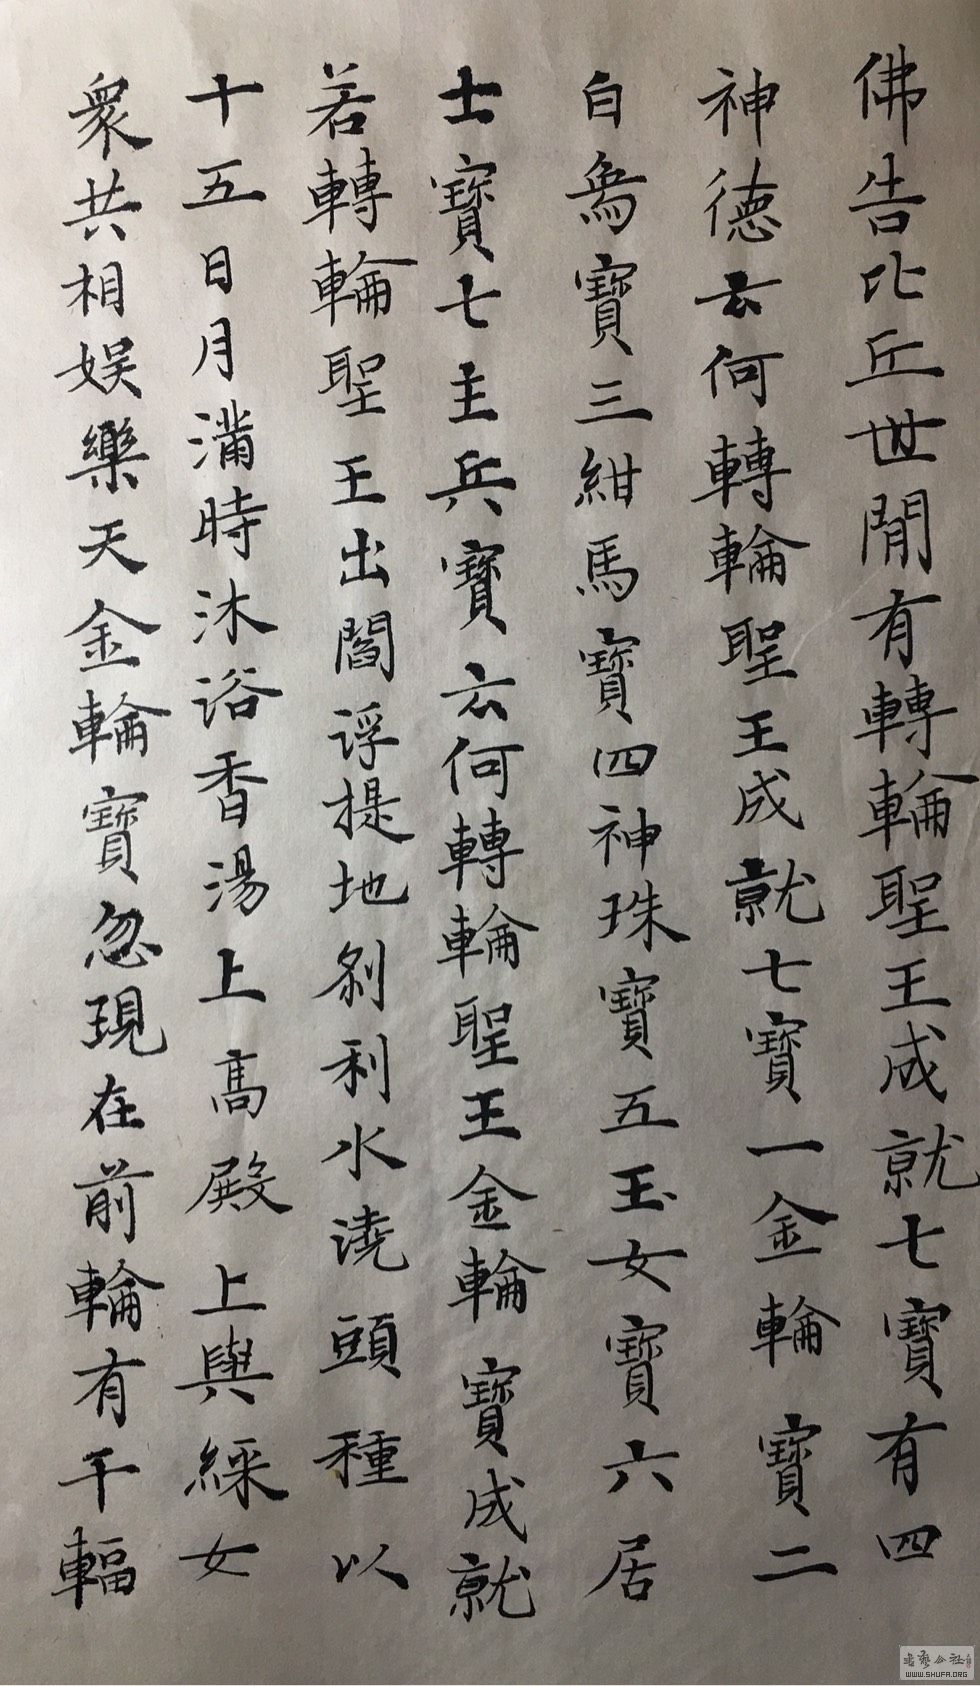 佛告比丘世間有轉輪聖王成就七寶有四
神德云何轉輪聖王成就七寶一金輪寶二
白爲寶三紺馬寶四神珠寶五玉女寶六居
士寶七主兵寶云何轉輪聖王金輪寶成就
若轉輪聖王出閻浮提地剎利水澆頭種以
十五日月滿時沐浴香湯上高殿上與綵女
衆共相娛樂天金輪寶忽現在前輪有千輻
書藝公社
WWW.SHUFA.ORG